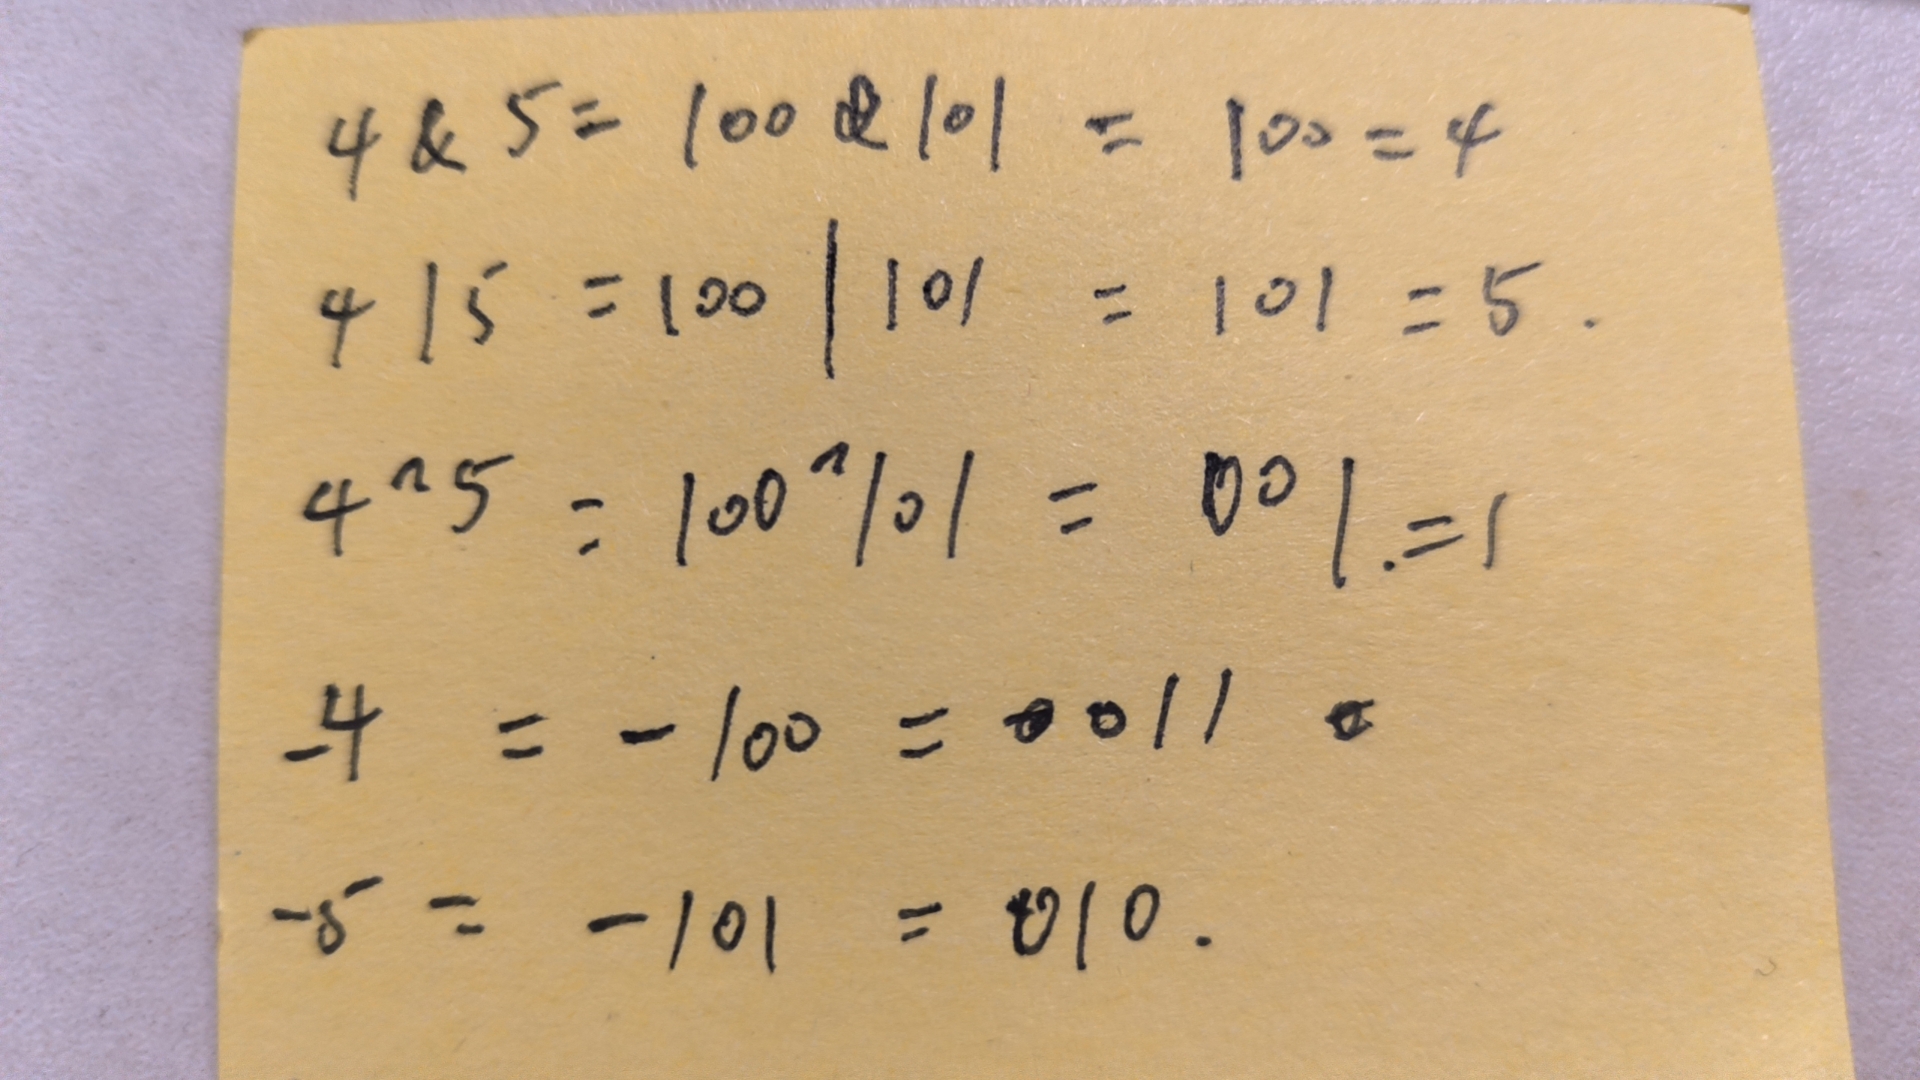 4 & 5 = 100 & 101 = 100 = 4
4 | 5 = 100 | 101 = 101 = 5.
4 ^ 5 = 100 ^ 101 = 001. = 1
-4 = -100 = 011
-5 = -101 = 010.